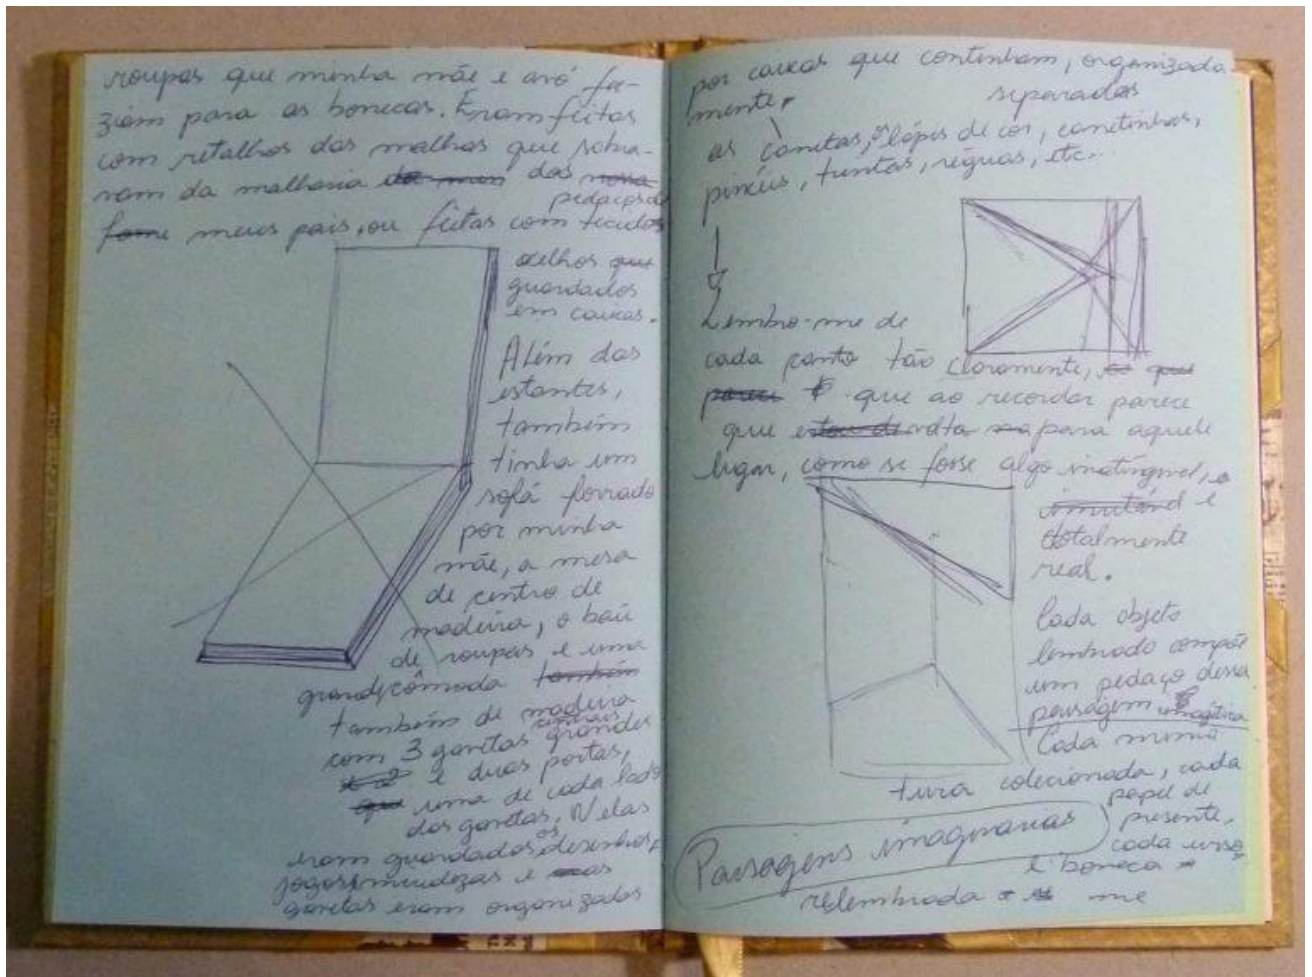 roupas que minha mãe e avó fa-
ziam para as bonecas. Eram feitas
com retalhos das malhas que sobra-
vam da malharia das
pedaços de
meus pais, ou feitas com tecidos
velhos
guardados
em caixas.
Além das
estantes,
também
tinha um
sofá forrado
por minha
mãe, a mesa
de centro de
madeira, o baú
de roupas e uma
grande cômoda também
também de madeira
com 3 gavetas grandes
e duas portas,
uma de cada lado
das gavetas. Nelas
eram guardados os desenhos,
jogos, miudezas e as
gavetas eram organizadas
por caixas que continham, organizada-
mente,
separados
as canetas, os lápis de cor, canetinhas,
pincéis, tintas, réguas, etc.
Lembro-me de
cada canto tão claramente,
que ao recordar parece
que volta para aquele
lugar, como se fosse algo inatingível, e
e
totalmente
real.
Cada objeto
lembrado compõe
um pedaço dessa
paisagem imagética
Cada minia
tura colecionada, cada
papel de
presente,
cada urso
e boneca
Paisagens imaginárias
relembrada me